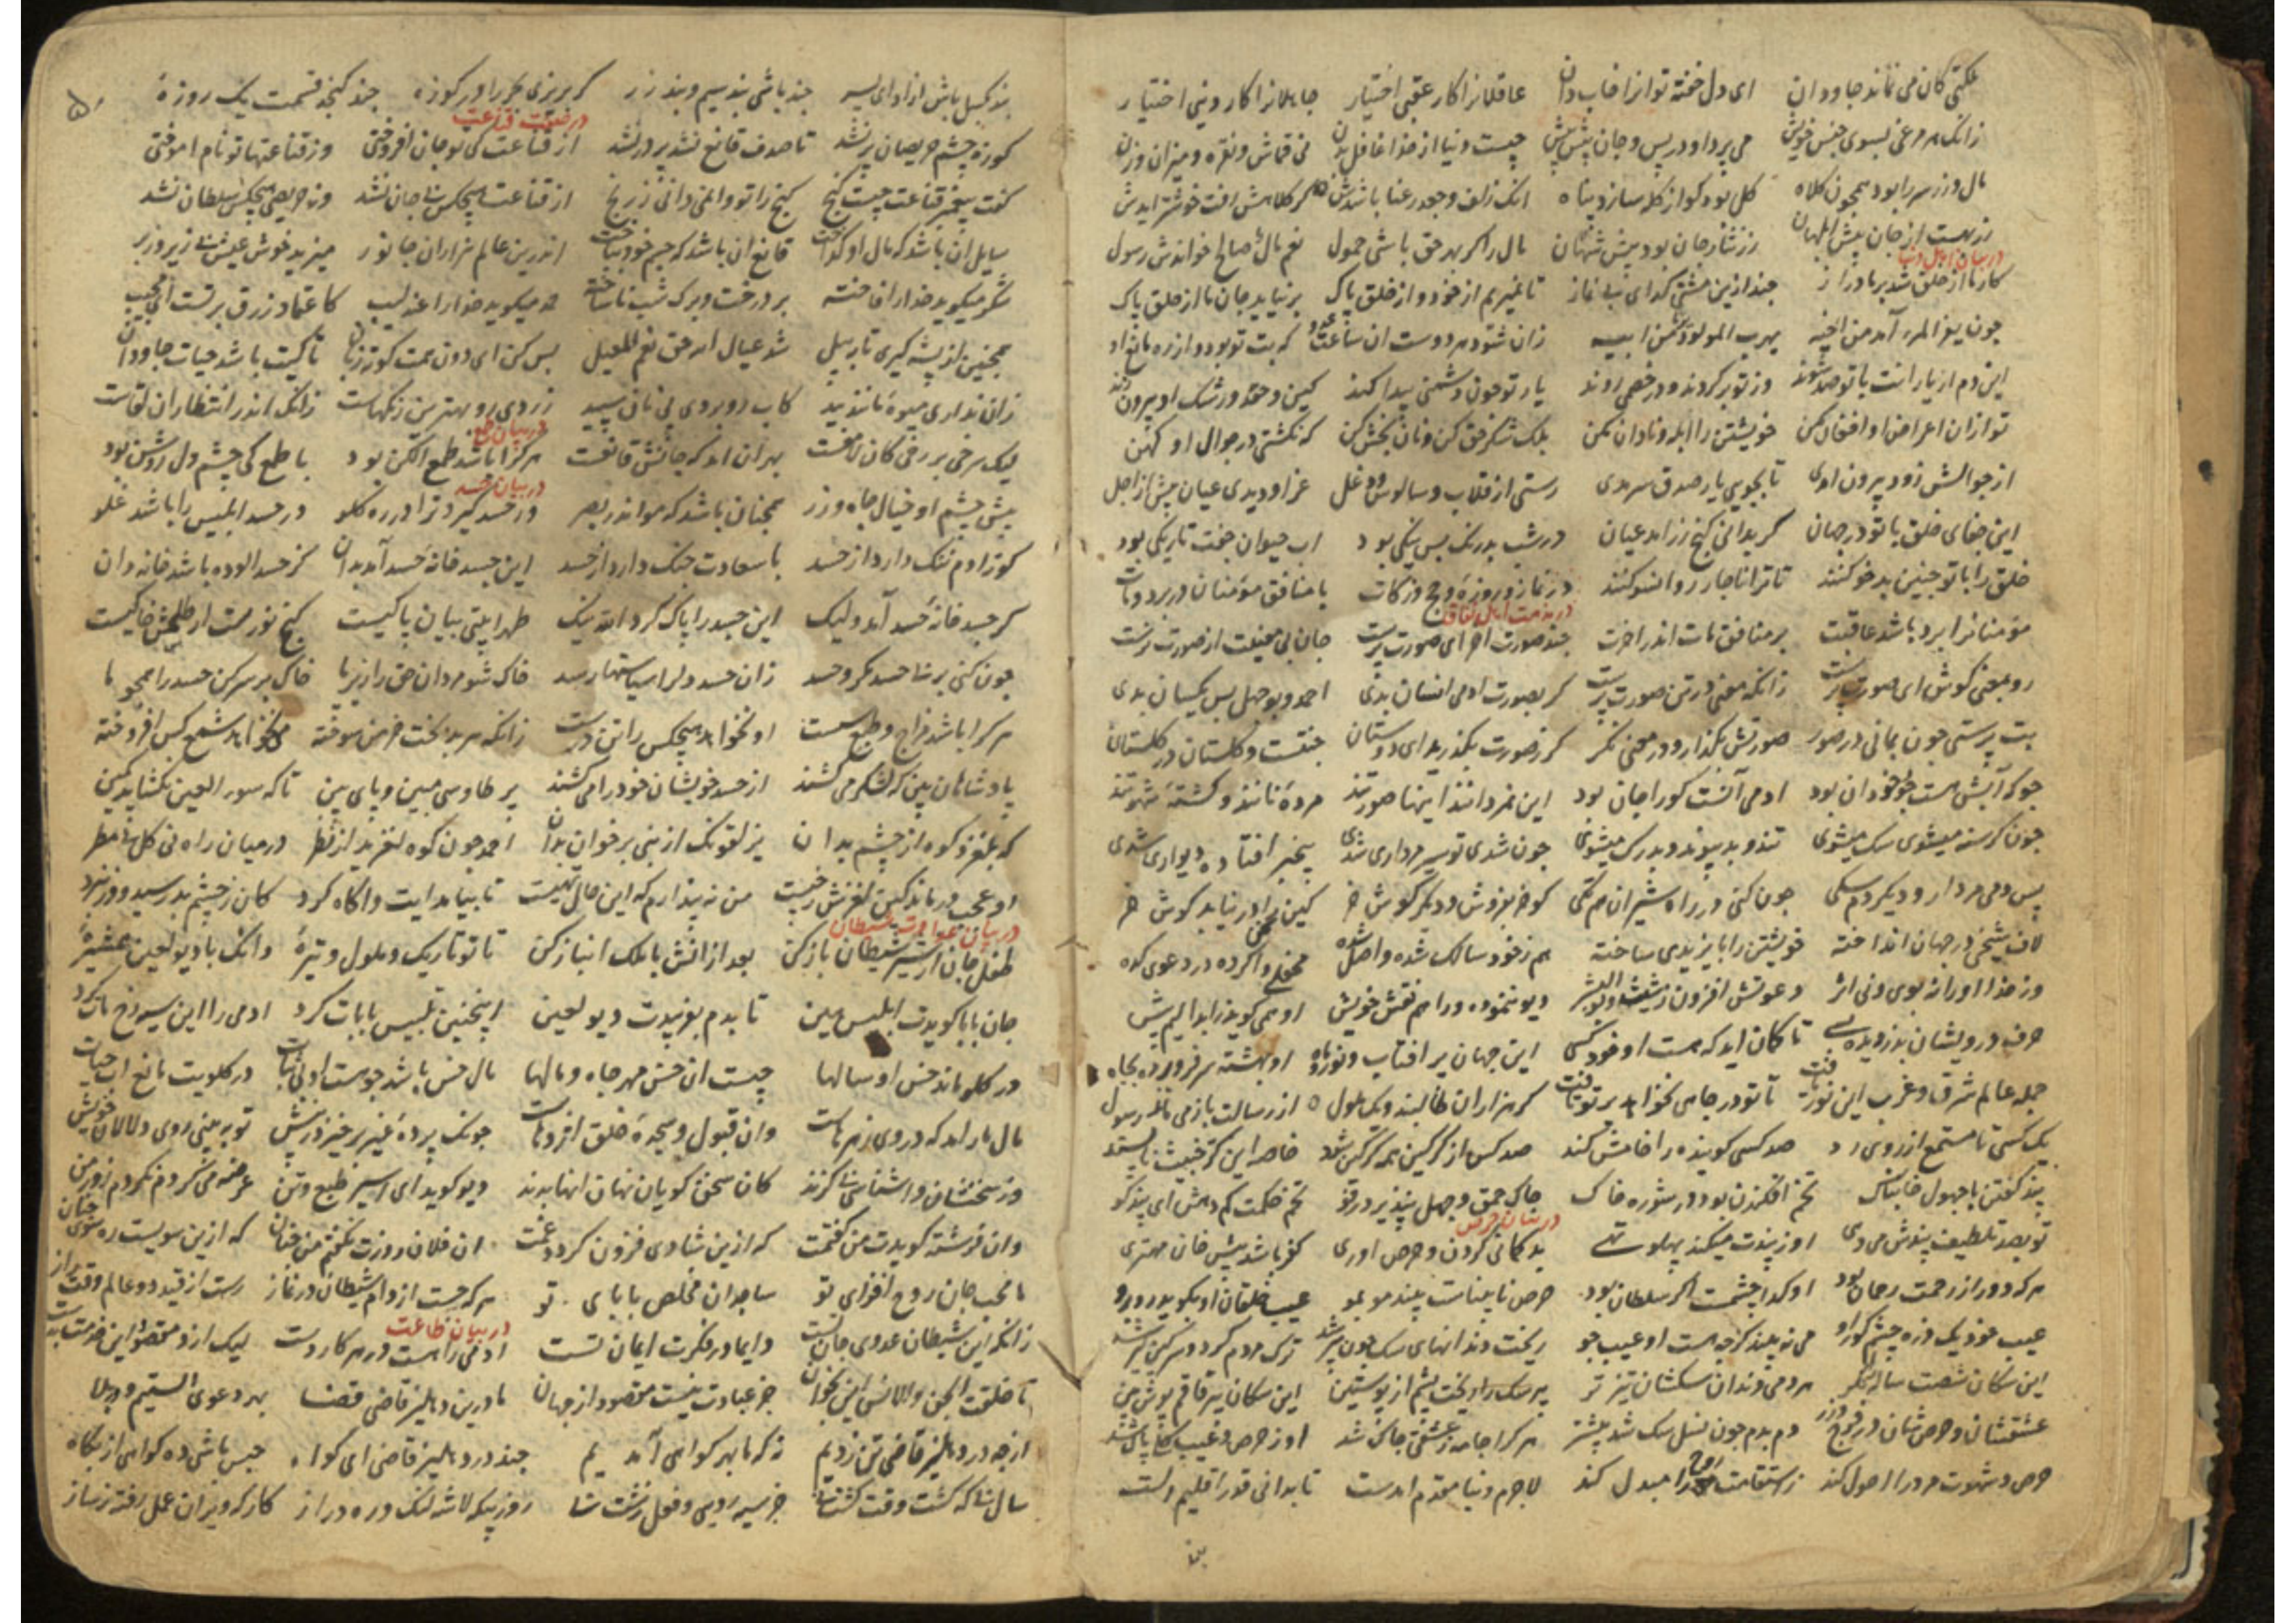 ملکتی کان می نماند جاودان ای دل خفته تو انرا خاب دان عاقلانرا کار عقبی اختیار جاهلانرا کار دنیی اختیار
زانک هر مرغی بسوی جنس خویش می پرد او در پس و جان پیش پیش چیست دنیا از خذا غافل بدن نی قماش و نقره و میزان وزن
مال و زر سر را بود همچون کلاه کل بود کو از کله سازد پناه انک زلف و جعد رعنا باشدش کلاهش رفت خوشتر ایدش
زر بهست از جان پیش ابلهان زر نثار جان بود پیش شهان مال را کز بهر حق باشی حمول نعم مال صالح خواندش رسول
در بیان اهل دنیا
کار ما از خلق شد بر ما دراز چند ازین مشتی کدای بی نماز تا نمیریم از خود و از خلق پاک بر نیاید جان ما از خلق پاک
چون یفر المرء آمد من اخیه یهرب المولود من ابیه زان شود هر دوست ان ساعت عدو که بت تو بود و از ره مانع او
این دم ار یارانت با تو ضد شوند وز تو بر کردند و در خصمی روند یار تو چون دشمنی پیدا کند کین و حقد و رشک او بیرون زند
تو ازان اعراض او افغان مکن خویشتن را ابله و نادان مکن بلک شکر حق کن و نان بخش کن که نکشتی در جوال او کهن
از جوالش زود بیرون امدی تا بجویی یار صدق سرمدی رستی از قلاب و سالوس و دغل غر او دیدی عیان پیش از اجل
این جفای خلق با تو در جهان کر بدانی کنج زر امد عیان در شب بدرنک بس نیکی بود اب حیوان جفت تاریکی بود
خلق را با تو چنین بدخو کنند تا ترا ناچار رو انسو کنند در نماز و روزه و حج و زکات با منافق مؤمنان در برد و مات
در مذمت اهل نفاق
مؤمنانرا برد باشد عاقبت بر منافق مات اندر اخرت چند صورت اخر ای صورت پرست جان بی معنیت از صورت نرست
رو بمعنی کوش ای صورت پرست زانکه معنی در تن صورت پرست کر بصورت ادمی انسان بدی احمد و بوجهل بس یکسان بدی
بت پرستی چون بمانی در صور صورتش بکذار و در معنی نکر کر ز صورت بکذرید ای دوستان جنتست و کلستان در کلستان
چونکه آبش هست جو خود ان بود ادمی آنست کو را جان بود این نمردانند اینها صورتند مرده نانند و کشته شهوتند
چون کرسنه میشوی سک میشوی تند و بد پیوند و بدرک میشوی چون شدی تو سیر مرداری شدی بیخبر افتاده دیواری شدی
پس دمی مردار و دیکر دم سکی چون کنی در راه شیران هم تکی کوش خر بفروش و دیکر کوش خر کین سخن را در نیابد کوش خر
لاف شیخی در جهان انداخته خویشتن را بایزیدی ساخته هم ز خود سالک شده و اصل شده محفلی وا کرده در دعوی کده
وز خذا او را نه بوی و نی اثر دعوتش افزون ز شیث و بو البشر دیو ننموده ورا هم نقش خویش او همی کوید ز ابدالیم بیش
حرف درویشان بدزدیده بسی تا کمان اید که هست او خود کسی این جهان پر افتاب و نور ماه او بهشته سر فرو برده بچاه
جمله عالم شرق و غرب این نور یافت تا تو در چاهی نخواهد بر تو تافت کر هزاران طالبند و یک ملول از رسالت باز می ماند رسول
یک کسی نا مستمع از روی رد صد کسی کوینده را خامش کند صد کس از کرکین همه کرکین شود خاصه این کر خبیث ناپسند
پند کفتن با جهول خابناک تخم افکندن بود در شوره خاک چاک حمق و جهل نپذیرد رفو تخم حکمت کم دهش ای پندکو
در بیان حرص
تو بصد تلطیف پندش می دهی او ز پندت میکند پهلو تهی بد کمانی کردن و حرص اوری کفر باشد پیش خان مهتری
هر که دور از رحمت رحمان بود او کدا چشمست اکر سلطان بود حرص نابیناست بیند مو بمو عیب خلقان او بکوید رو برو
عیب خود یک ذره چشم کور او می نبیند کرچه هست او عیب جو ریخت دندانهای سک چون پیر شد ترک مردم کرد و سرکین کیر شد
این سکان شصت ساله نکر هر دمی دندان سکشان تیز تر پیر سک را ریخت پشم از پوستین این سکان پیر قاقم پوش بین
عشقشان و حرصشان در فرج و زر دم بدم چون نسل سک شد بیشتر هر کرا جامه ز عشقی چاک شد او ز حرص و عیب کلی پاک شد
حرص و شهوت مرد را احول کند ز استقامت روح را مبدل کند لاجرم دنیا مقدم امدست تا بدانی قدر اقلیم الست
بند
۵
بند کسل باش ازاد ای پسر چند باشی بند سیم و بند زر کر بریزی بحر را در کوزه چند کنجد قسمت یک روزه
در صفت قناعت
کوزه چشم حریصان پر نشد تا صدف قانع نشد پر در نشد از قناعت کی تو جان افروختی وز قناعتها تو نام اموختی
کفت پیغمبر قناعت چیست کنج کنج را تو وا نمی دانی ز رنج از قناعت هیچکس بی جان نشد وز حریصی هیچکس سلطان نشد
سایل ان باشد که مال او کداخت قانع ان باشد که جسم خود بباخت اندرین عالم هزاران جانور میزید خوش عیش بی زیر و زبر
شکر میکوید خدا را فاخته بر درخت و برک شب ناساخته حمد میکوید خدا را عندلیب کاعتماد رزق بر تست ای مجیب
همچنین از پشه کیری تا بپیل شد عیال الله حق نعم المعیل بس کن ای دون همت کوته زبان تا کیت باشد حیات جاودان
زان نداری میوه مانند بید کاب رو بردی پی نان سپید زردی رو بهترین رنکهاست زانک اندر انتظار ان لقاست
در بیان طمع
لیک سرخی بر رخی کان لامعست بهر ان امد که جانش قانعست هر کرا باشد طمع الکن بود با طمع کی چشم دل روشن بود
در بیان حسد
پیش چشم او خیال جاه و زر همچنان باشد که مو اندر بصر ور حسد کیرد ترا در ره کلو در حسد ابلیس را باشد غلو
کو ز ادم ننک دارد از حسد با سعادت جنک دارد از حسد این جسد خانه حسد آمد بدان کز حسد الوده باشد خاندان
کر جسد خانه حسد آمد ولیک این جسد را پاک کرد الله نیک طهرا بیتی بیان پاکیست کنج نورست ار طلسمش خاکیست
چون کنی بر بی حسد مکر و حسد زان حسد دلرا سیاهیها رسد خاک شو مردان حق را زیر پا خاک بر سر کن حسد را همچو ما
هر کرا باشد مزاج و طبع سست او نخواهد هیچکس را تن درست زانکه هر بدبخت خرمن سوخته می نخواهد شمع کس افروخته
پادشاهان بین که لشکر می کشند از حسد خویشان خود را می کشند پر طاوسی مبین و پای بین تا که سوء العین نکشاید کمین
که بلغزد کوه از چشم بدان یزلقونک از نبی بر خوان بدان احمد چون کوه لغزید از نظر در میان راه بی کل بی مطر
در عجب درماند کین لغزش ز چیست من نه پندارم که این حالت تهیست تا بیامد ایت و اکاه کرد کان ز چشم بد رسید و وز نبرد
در بیان عداوت شیطان
طفل جان از شیر شیطان باز کن بعد ازانش با ملک انباز کن تا تو تاریک و ملول و تیره دانک با دیو لعین همشیره
جان بابا کویدت ابلیس هین تا بدم بفریبدت دیو لعین اینچنین تلبیس با بابات کرد ادمی را این سیه رخ مات کرد
در کلو ماند خس او سالها چیست ان خس مهر جاه و مالها مال خس باشد چو هست او بی ثبات در کلویت مانع اب حیات
مال مار امد که در وی زهرهاست وان قبول و سجده خلق اژدهاست چونک پرده غیب برخیزد ز پیش تو ببینی روی دلالان خویش
وز سخنشان واشناسی بی کزند کان سخن کویان نهان اینها بدند دیو کوید ای اسیر طبع و تن عرضه می کردم نکردم زور من
وان فرشته کویدت من کفتمت که ازین شادی فزون کردد غمت ان فلان روزت نکفتم من چنان که ازین سویست ره سوی جنان
ما محب جان روح افزای تو ساجدان مخلص بابای تو هر که جست از دام شیطان در نماز رست از قید دو عالم وقت راز
در بیان طاعت
زانکه این شیطان عدوی جان تست دایما در فکرت ایمان تست ادمی را هست در هر کار دست لیک ازو مقصود این خدمت بدست
ما خلقت الجن والانس این بخوان جز عبادت نیست مقصود از جهان ما درین دهلیز قاضی قضا بهر دعوی الستیم و بلی
از چه در دهلیز قاضی تن زدیم نه که ما بهر کواهی آمدیم چند در دهلیز قاضی ای کواه حبس باشی ده کواهی از پکاه
سال بی که کشت وقت کشت نی جز سیه رویی و فعل زشت نی روز بیکه لاشه لنک و ره دراز کارکه ویران عمل رفته ز ساز